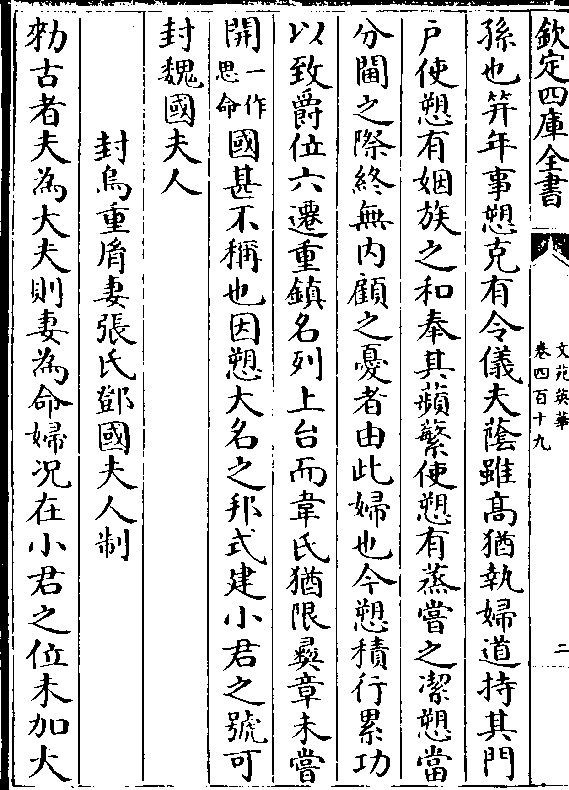 欽定四庫全書
文苑英華
卷四百十九
二
孫也笄年事愬克有令儀夫蔭雖髙猶執婦道持其門
户使愬有姻族之和奉其蘋蘩使愬有蒸嘗之潔愬當
分閫之際終無内顧之憂者由此婦也今愬積行累功
以致爵位六遷重鎮名列上台而韋氏猶限彛章未嘗
開一作思命國甚不稱也因愬大名之邦式建小君之號可
封魏國夫人
封烏重㣧妻張氏鄧國夫人制
勑古者夫為大夫則妻為命婦况在小君之位未加大